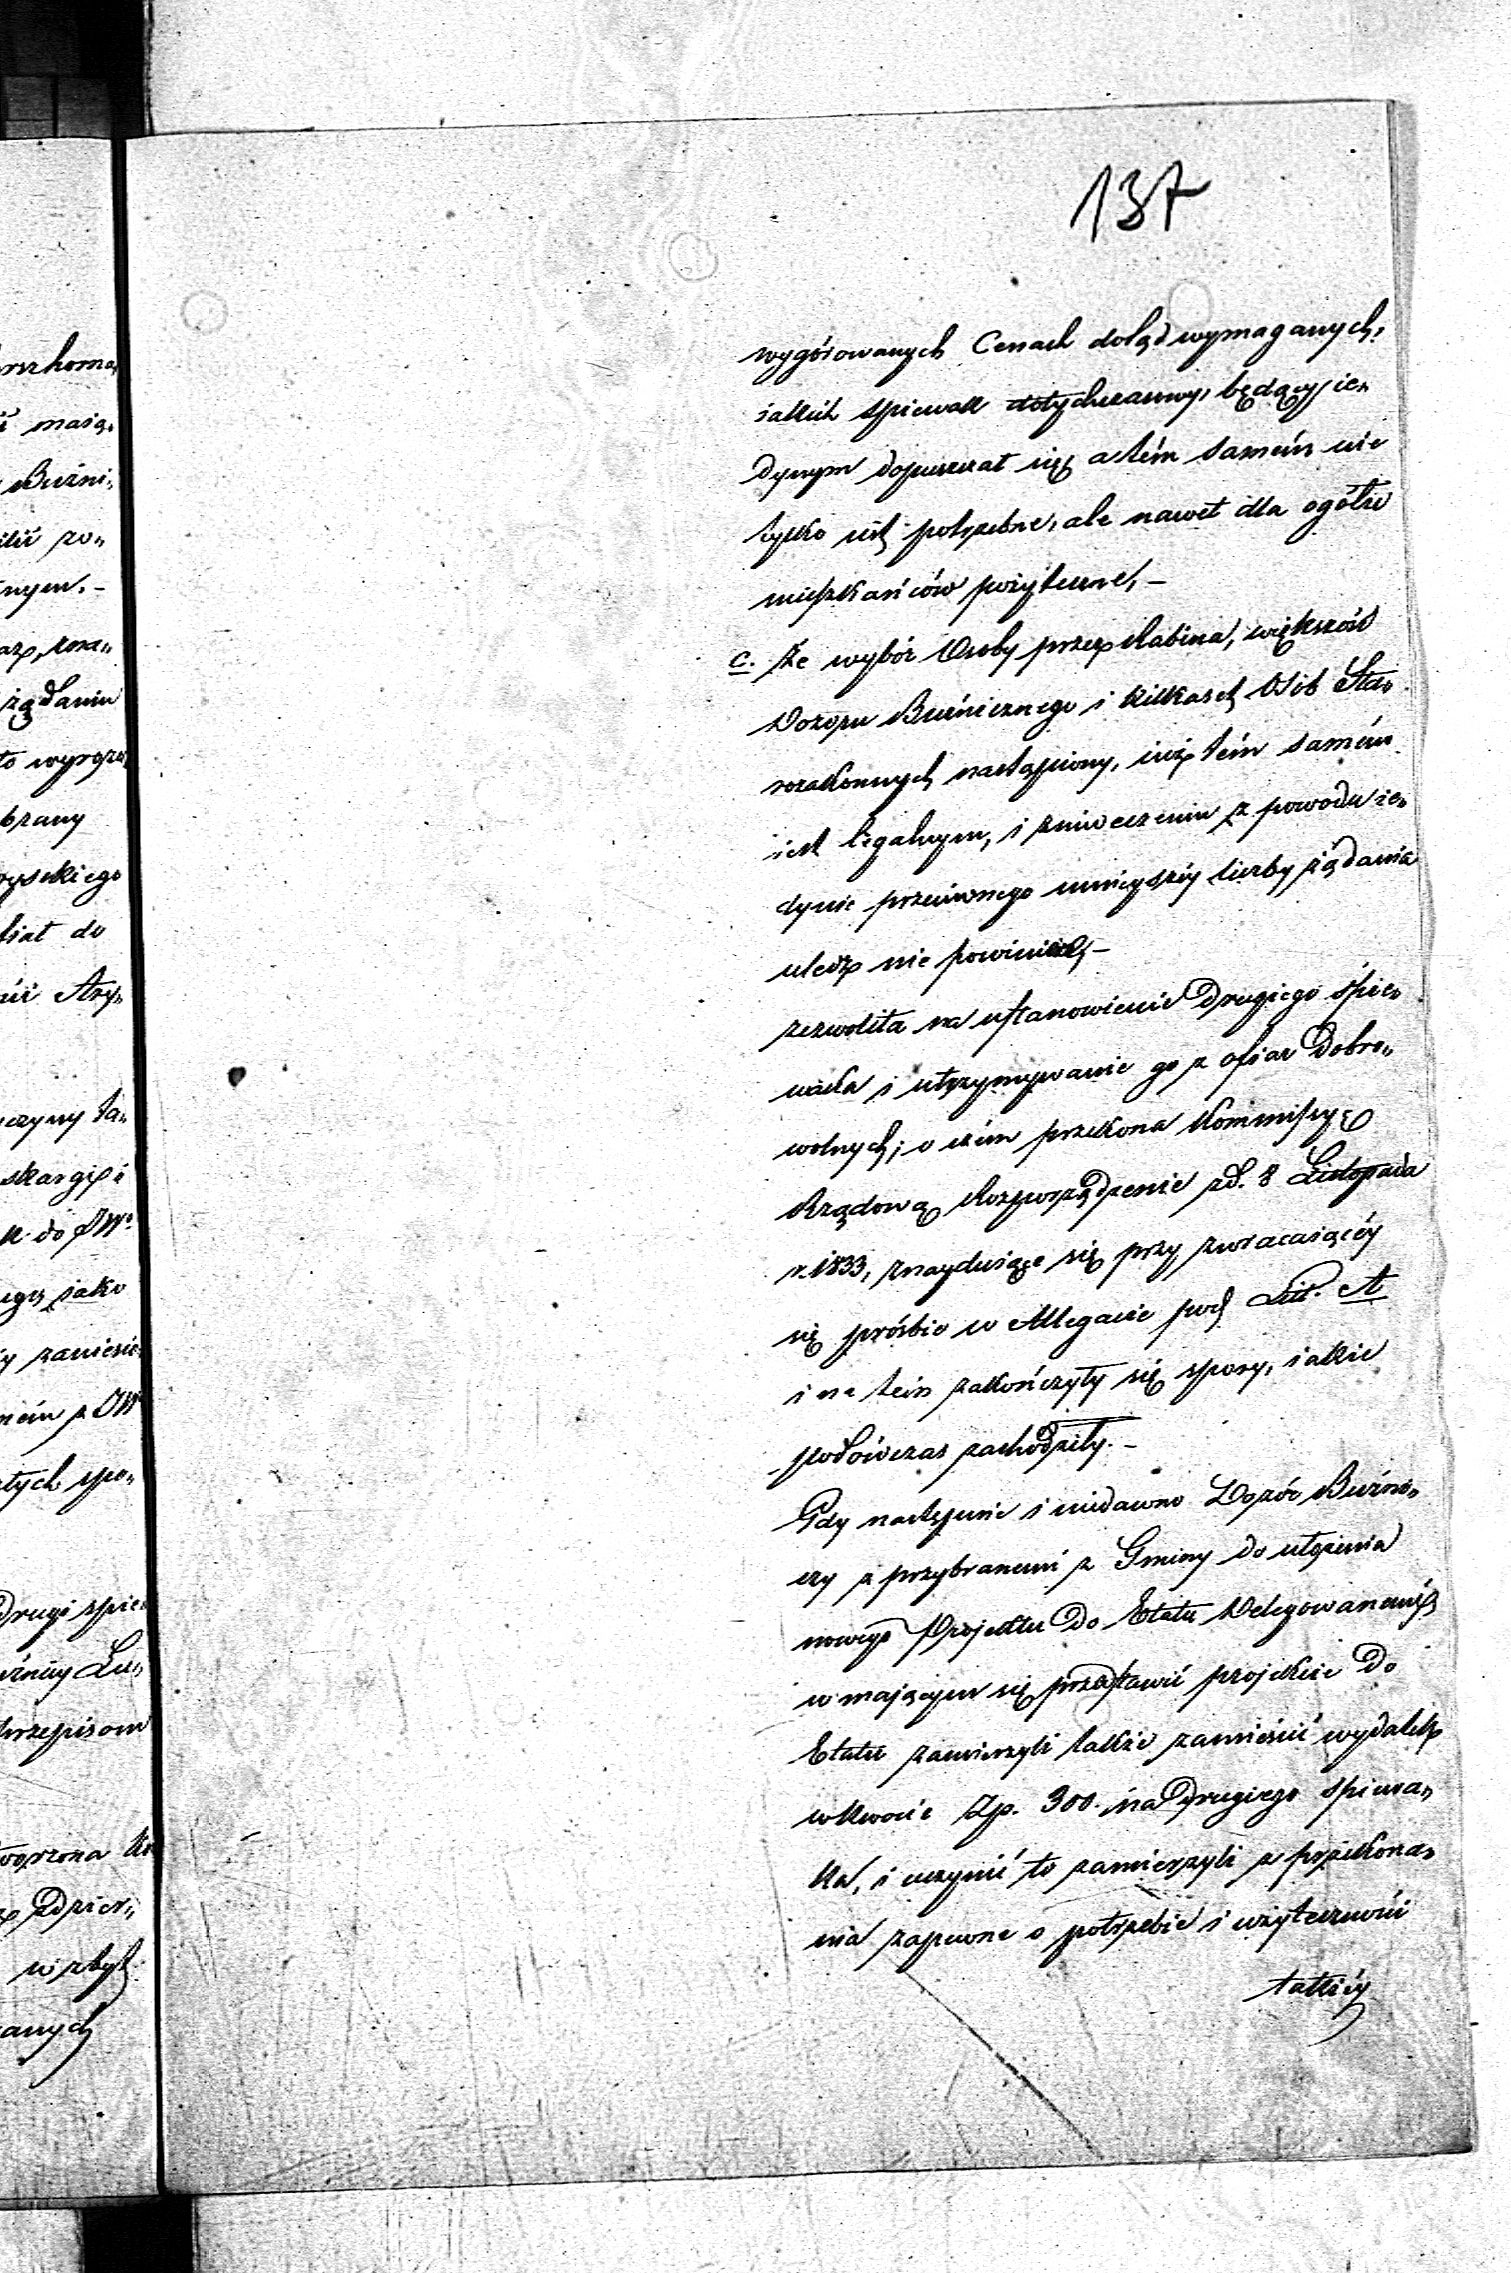 137
wygórowanych Cenach dotąd wymaganych,
iakich spiewak dotychczasowy, będący ie„
dynym dopuszczał się a tém samém nie
tylko iest potrzebne, ale nawet dla ogółu
mieszkańców pożyteczne, –
c. Że wybór Osoby przez Rabina, większość
Dozoru Bużnicznego i kilkaset Osób Sta„
rozakonnych nastąpiony, iuż tém samém
iest legalnym, i zniweczeniu z powodu ie„
dynie przeciwnego mnieyszéy liczby żądania
uledz nie powinien, –
zezwoliła na ustanowienie drugiego śpie„
waka i utrzymywanie go z ofiar dobro„
wolnych; o czém przekona Kommissyę
Rządową Rozporządzenie z d. 8 Listopada
r. 1833, znayduiące się przy zwracaiącéy
się prośbie w Allegacie pod Lit. A
i na tém zakończyły się spory, iakie
podówczas zachodziły. –
Gdy następnie i niedawno Dozór Bużni„
czy z przybranemi z Gminy do ułożenia
nowego Projektu do Etatu Delegowanemi,
w mającym się przedstawić projekcie do
Etatu zamierzyli także zamieścić wydatek
w kwocie Zp. 300. na drugiego spiewa„
ka, i uczynić to zamierzyli z przekona„
nia zapewne o potrzebie i użyteczności
takiéy
rszkoma„
maią„
Buźni„
nym. –
żądaniu
brany
do
skargi i
iako
tych spo„
drugi spie„
Lu„
przepisom
w zbyt
anych